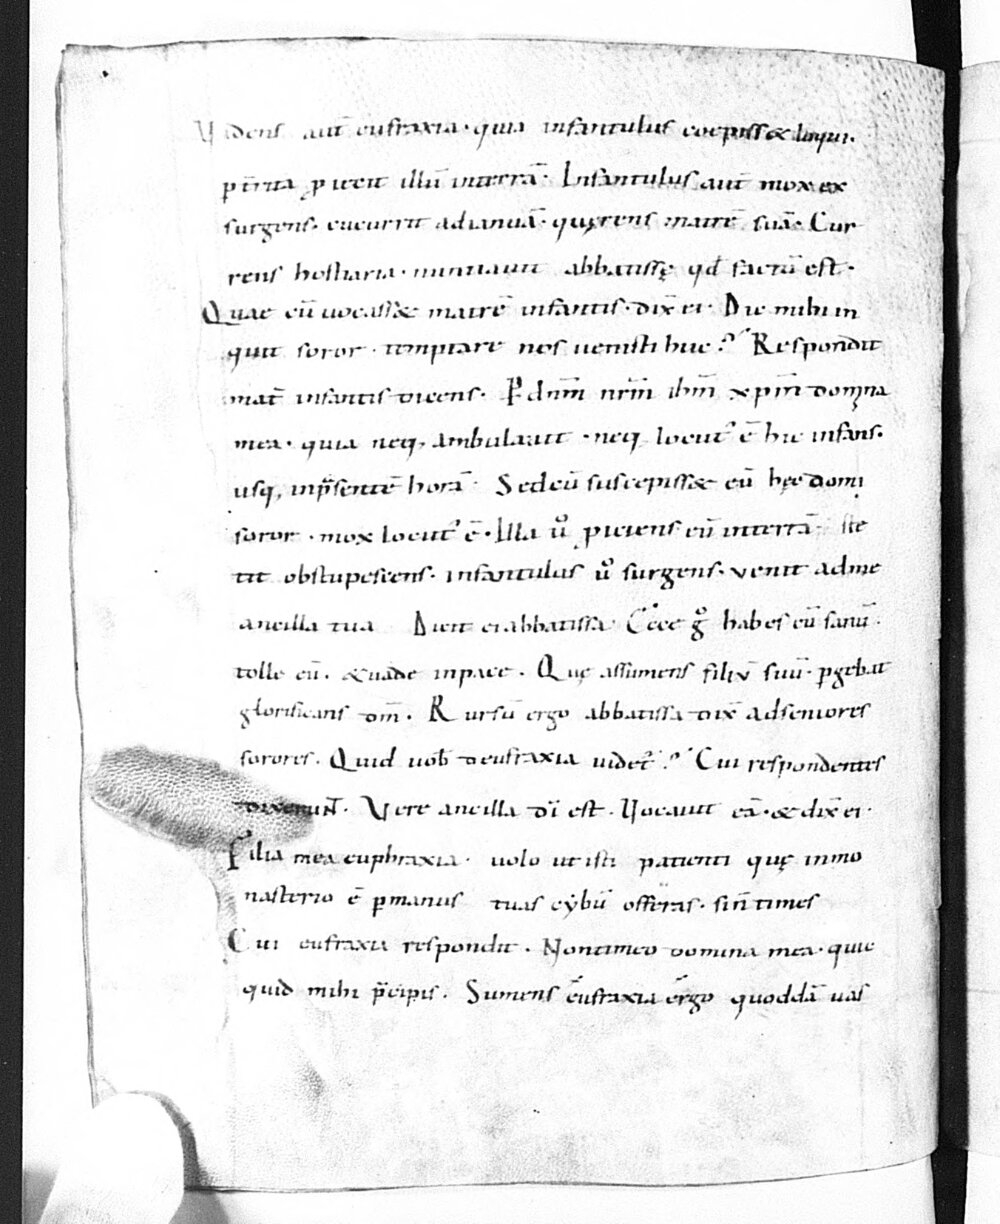 Videns aut̄ eufraxia · quia infantulus coepiss& loqui·
ptīrita p̱iecit illū interrā· Infantulus aut̄ mox ex
surgens· cucurrit adianuā· quęrens matrē suā· Cur
rens hostiaria · nuntiauit abbatissę qd̄ factū est·
Quae cū uocass& matrē infantis · dix̄ ei· Dic mihi in
quit soror · temptare nos uenisti huc? Respondit
mat̄ infantis dicens· P dn̄m nr̄m ih̄m xp̄m domna
mea· quia neq, ambulauit · neq, locut᾽ ē hic infans·
usq, inp̄sentē horā· Sed cū suscepiss& eū hęc domi
soror · mox locut᾽ ē· Illa ů piciens eū interrā· ste
tit obstupescens· infantulus ů surgens· venit adme
ancilla tua Dicit ei abbatissa· Ecce g̊ habes eū sanū·
tolle eū· &uade inpace · Quę assumens filiū suū· ꝑgebat
glorificans dm̄· Rursū ergo abbatissa dix̄ adseniores
sorores· Quid uob̄ deufraxia videt᾽? Cui respondentes
dixerunt· Vere ancilla dī est · Uocauit eā· & dix̄ ei·
Filia mea euphraxia· uolo ut isti patienti quę inmo
nasterio ē ꝑmanus tuas cybū offeras· sin̄ times
Cui eufraxia respondit · Non timeo domina mea· quic
quid mihi p̄cipis· Sumens eufraxia ergo quoddā uas